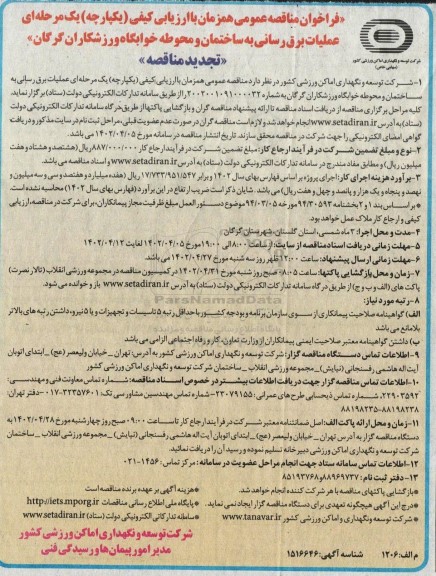 «فراخوان مناقصه عمومی همزمان با ارزیابی کیفی (یکپارچه) یک مرحله ای
عملیات برق رسانی به ساختمان و محوطه خوابگاه ورزشکاران گرگان»
«تجدید مناقصه»
شرکت توسعه و نگهداری اماکن ورزشی کشور
۱- شرکت توسعه و نگهداری اماکن ورزشی کشور در نظر دارد مناقصه عمومی همزمان با ارزیابی کیفی (یکپارچه) یک مرحله ای عملیات برق رسانی به
ساختمان و محوطه خوابگاه ورزشکاران گرگان به شماره ۲۰۰۲۰۰۱۰۹۱۰۰۰۰۳۲ را از طریق سامانه تدارکات الکترونیکی دولت (ستاد) برگزار نماید.
کلیه مراحل برگزاری مناقصه از دریافت اسناد مناقصه تا ارائه پیشنهاد مناقصه گران و بازگشایی پاکتها از طریق درگاه سامانه تدارکات الکترونیکی دولت
(ستاد) به آدرس www.setadiran.ir انجام خواهد شد و لازم است مناقصه گران در صورت عدم عضویت قبلی، مراحل ثبت نام در سایت مذکور و دریافت
گواهی امضای الکترونیکی را جهت شرکت در مناقصه محقق سازند. تاریخ انتشار مناقصه در سامانه مورخ ۱۴۰۲/۰۴/۰۵ می باشد.
۲- نوع و مبلغ تضمین شرکت در فرآیند ارجاع کار: مبلغ تضمین شرکت در فرآیند ارجاع کار ۸۸۷/۰۰۰/۰۰۰ ریال (هشتصد و هشتاد و هفت
میلیون ریال) و مطابق مفاد مندرج در سامانه تدارکات الکترونیکی دولت (ستاد) به آدرس www.setadiran.ir و اسناد مناقصه می باشد.
۳- برآورد هزینه اجرای کار: اجرای پروژه بر اساس فهارس بهای سال ۱۴۰۲ و برابر ۱۷/۷۳۳/۹۵۱/۵۴۷ ریال (هفده میلیارد و هفتصد و سی و سه میلیون و
نهصد و پنجاه و یک هزار و پانصد و چهل و هفت ریال) می باشد. شایان ذکر است ضریب ارتفاع در این برآورد (فهارس بهای سال ۱۴۰۲) محاسبه نشده است.
* بر اساس بند ۱ و ۲ بخشنامه ۹۴/۳۰۵۹۳ مورخه ۹۴/۰۳/۰۵ موضوع دستور العمل مبلغ ظرفیت مجاز پیمانکاران، برای شرکت در مناقصه، ارزیابی
کیفی و ارجاع کار ملاک عمل خواهد بود.
۴- مدت و محل اجرا: ۳ ماه شمسی، استان گلستان، شهرستان گرگان
۵- مهلت زمانی دریافت اسناد مناقصه از سایت: از ساعت ۸:۰۰ الی ۱۹:۰۰ مورخ ۱۴۰۲/۰۴/۰۵ لغایت ۱۴۰۲/۰۴/۱۲
۶- مهلت زمانی ارسال پیشنهاد: ساعت ۱۲:۰۰ ظهر روز سه شنبه مورخ ۱۴۰۲/۰۴/۲۷ می باشد
۷- زمان و محل بازگشایی پاکتها: ساعت ۰۸:۰۵ صبح روز شنبه مورخ ۱۴۰۲/۰۴/۳۱ در کمیسیون مناقصه در مجموعه ورزشی انقلاب (تالار نصرت)
پاکت های (الف و ب و ج) از طریق درگاه سامانه تدارکات الکترونیکی دولت (ستاد) به آدرس www.setadiran.ir باز و خوانده می شود.
۸- رتبه مورد نیاز:
الف) گواهینامه صلاحیت پیمانکاری از سوی سازمان برنامه و بودجه کشور با حداقل رتبه ۵ تاسیسات و تجهیزات و یا ۵ نیرو، داشتن رتبه های بالاتر
بلامانع می باشد
ب) داشتن گواهینامه معتبر صلاحیت ایمنی پیمانکاران از وزارت تعاون، کار و رفاه اجتماعی الزامی می باشد
۹- اطلاعات تماس دستگاه مناقصه گزار: شرکت توسعه و نگهداری اماکن ورزشی کشور به آدرس: تهران _ خیابان ولیعصر (عج) _ ابتدای اتوبان
آیت اله هاشمی رفسنجانی (نیایش) _ مجموعه ورزشی انقلاب _ ساختمان شرکت توسعه و نگهداری اماکن ورزشی کشور
۱۰- اطلاعات تماس مناقصه گزار جهت دریافت اطلاعات بیشتر در خصوص اسناد مناقصه: شماره تماس معاونت فنی و مهندسی:
۲۲۹۰۳۵۹۲، شماره تماس ذیحسابی طرح های عمرانی: ۲۳۰۷۹۱۵۵، شماره تماس مهندسین مشاور سی تک: ۳۲۳۵۷۶۰۱-۰۱۷ -دفتر تهران:
۸۸۱۹۸۲۳۸-۸۸۱۹۸۲۳۵
۱۱- زمان و محل ارائه پاکت الف: اصل ضمانتنامه معتبر شرکت در فرآیند ارجاع کار تا ساعت ۰۹:۰۰ صبح روز چهارشنبه مورخ ۱۴۰۲/۰۴/۲۸ به
دستگاه مناقصه گزار به آدرس تهران _ خیابان ولیعصر (عج) _ ابتدای اتوبان آیت اله هاشمی رفسنجانی (نیایش) _ مجموعه ورزشی انقلاب _ ساختمان
شرکت توسعه و نگهداری اماکن ورزشی دبیرخانه تسلیم نموده و رسید آن را دریافت نمائید.
۱۲- اطلاعات تماس سامانه ستاد جهت انجام مراحل عضویت در سامانه: مرکز تماس: ۱۴۵۶-۰۲۱
۱۳- دفتر ثبت نام: ۸۸۹۶۹۷۳۷ و ۸۵۱۹۳۷۶۸
* بازگشایی پاکتهای مناقصه با هر شرکت کننده انجام خواهد شد.
* درج این آگهی هیچگونه تعهدی برای دستگاه مناقصه گزار ایجاد نمی نماید.
* شرکت توسعه و نگهداری اماکن ورزشی کشور www.tanavar.ir
* هزینه آگهی بر عهده برنده مناقصه است
* پایگاه ملی اطلاع رسانی مناقصات http://iets.mporg.ir
* سامانه تدارکاتی الکترونیکی دولت (ستاد) www.setadiran.ir
شرکت توسعه و نگهداری اماکن ورزشی کشور
مدیر امور پیمان ها و رسیدگی فنی
شناسه آگهی: ۱۵۱۶۶۴۶
م الف: ۱۲۰۶
ParsNamadData